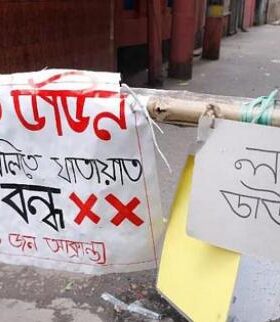 ডাউন
গলিতে যাতায়াত
বন্ধ ××
জন আক্রান্ত
ল
ডাউ